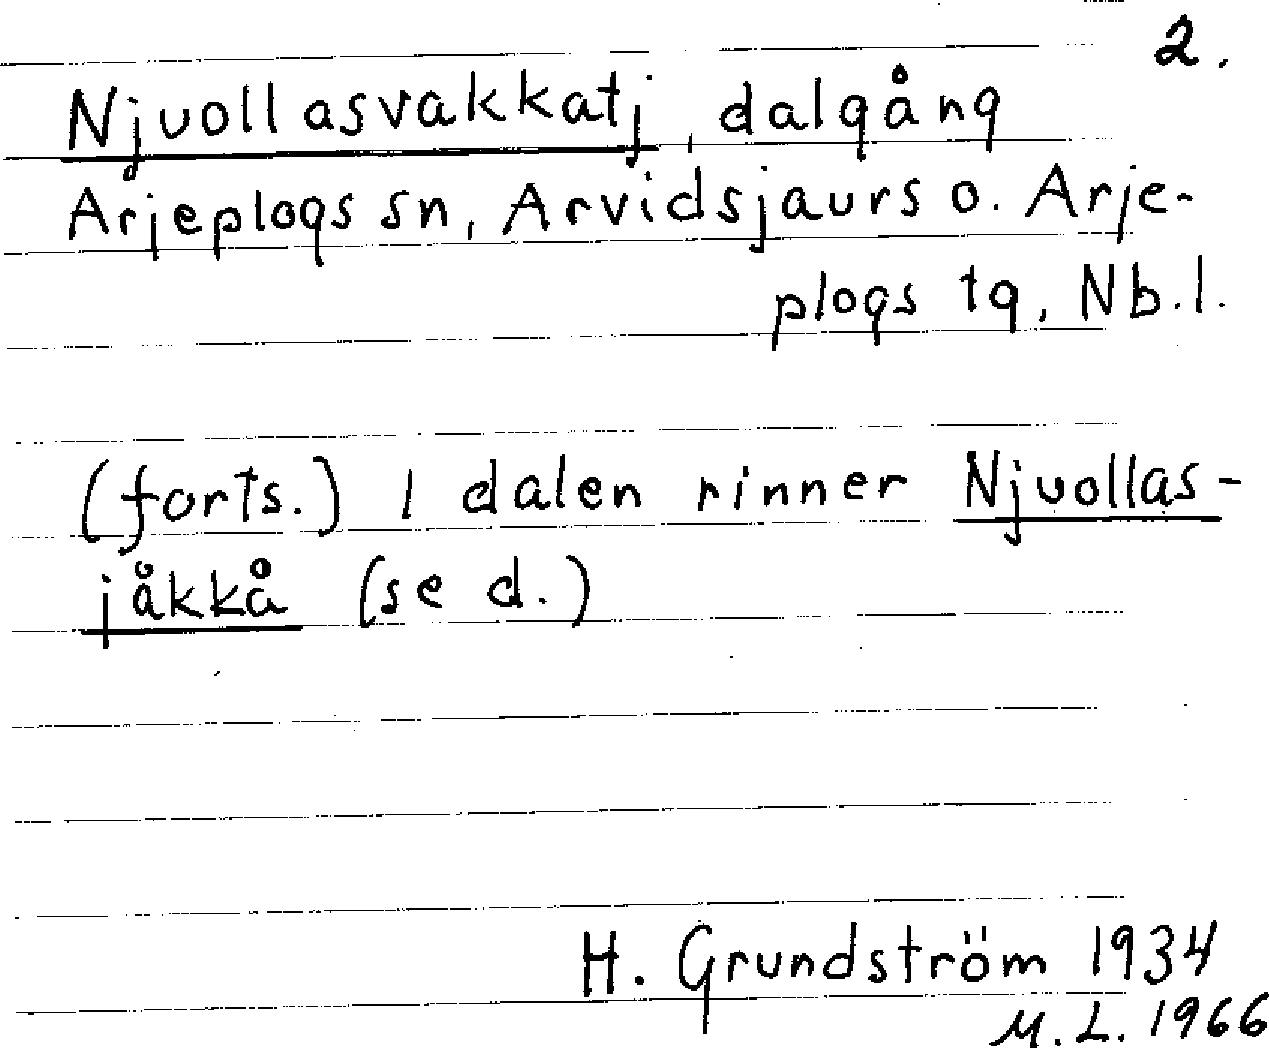 2.
Njuollasvakkatj, dalgång
Arjeplogs sn, Arvidsjaurs o. Arje-
plogs tg, Nb.l.
(forts.) I dalen rinner Njuollas-
jåkkå (se d.)
H. Grundström 1934
M.L. 1966